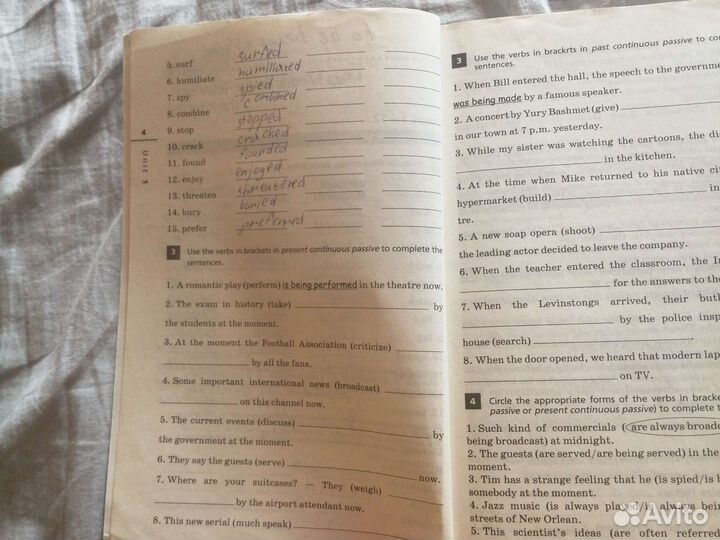 5. surf surfed
6. humiliate humiliated
7. spy spied
8. combine combined
9. stop stopped
10. crack cracked
11. found founded
12. enjoy enjoyed
13. threaten
14. bury buried
15. prefer preferred
4
Unit 1
3 Use the verbs in brackets in present continuous passive to complete the
sentences.
1. A romantic play (perform) is being performed in the theatre now.
2. The exam in history (take) by
the students at the moment.
3. At the moment the Football Association (criticize)
by all the fans.
4. Some important international news (broadcast)
on this channel now.
5. The current events (discuss) by
the government at the moment.
6. They say the guests (serve) now.
7. Where are your suitcases? — They (weigh)
by the airport attendant now.
8. This new serial (much speak)
3 Use the verbs in brackrts in past continuous passive to co
sentences.
1. When Bill entered the hall, the speech to the governme
was being made by a famous speaker.
2. A concert by Yury Bashmet (give)
in our town at 7 p.m. yesterday.
3. While my sister was watching the cartoons, the di
in the kitchen.
4. At the time when Mike returned to his native ci
hypermarket (build)
tre.
5. A new soap opera (shoot)
the leading actor decided to leave the company.
6. When the teacher entered the classroom, the
for the answers to the
7. When the Levinstongs arrived, their but
by the police insp
house (search)
8. When the door opened, we heard that modern lap
on TV.
4 Circle the appropriate forms of the verbs in bracke
passive or present continuous passive) to complete t
1. Such kind of commercials (are always broadc
being broadcast) at midnight.
2. The guests (are served/are being served) in the
moment.
3. Tim has a strange feeling that he (is spied/is b
somebody at the moment.
4. Jazz music (is always played/is always bein
streets of New Orlean.
5. This scientist's ideas (are often referred
Avito